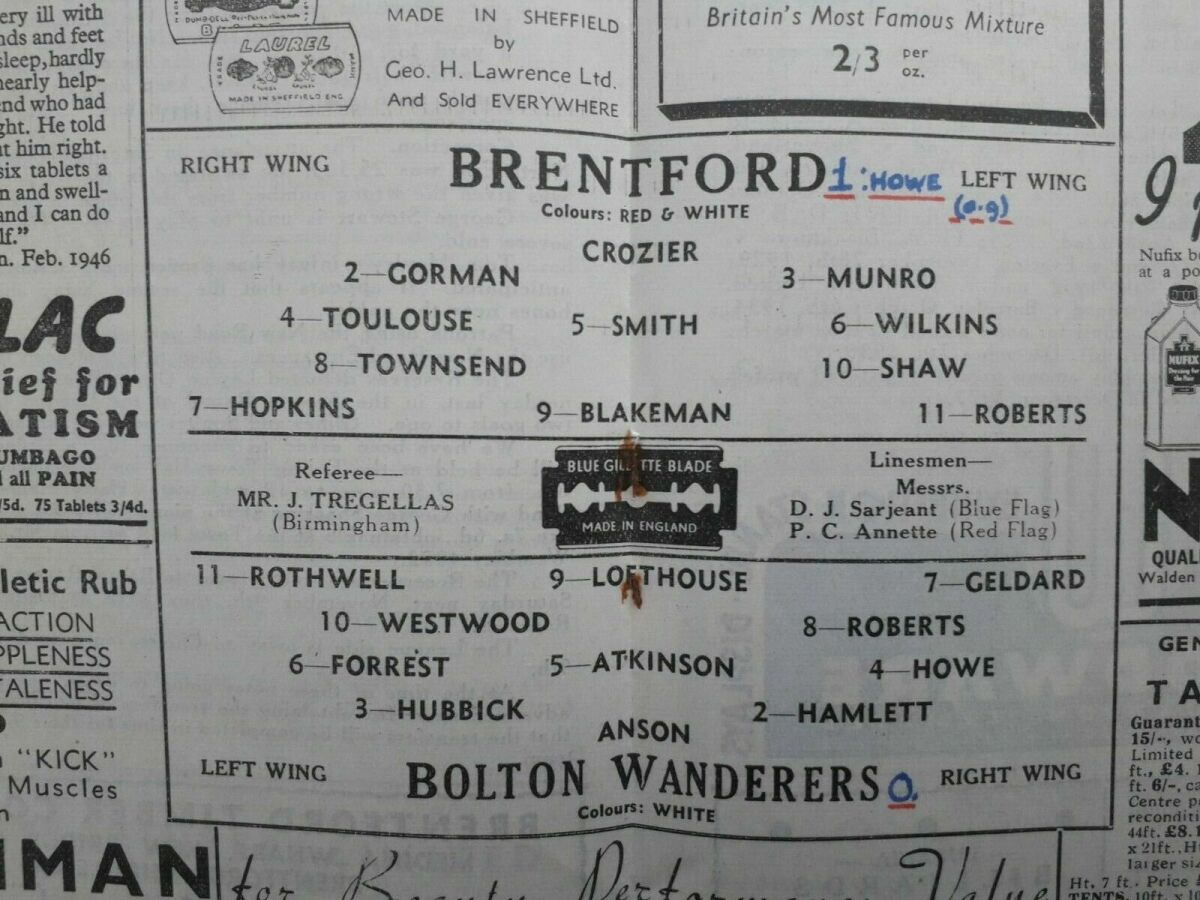 ery ill with
nds and feet
sleep, hardly
nearly help-
end who had
ght. He told
ut him right.
six tablets a
n and swell-
and I can do
lf."
n. Feb. 1946
LAC
ief for
ATISM
UMBAGO
d all PAIN
/5d. 75 Tablets 3/4d.
letic Rub
ACTION
PPLENESS
TALENESS
"KICK"
Muscles
MAN
LAUREL
TRADE
MARK
MADE IN SHEFFIELD ENG.
MADE IN SHEFFIELD
by
Geo. H. Lawrence Ltd.
And Sold EVERYWHERE
Britain's Most Famous Mixture
2/3 per oz.
RIGHT WING
BRENTFORD 1: HOWE
(o.g)
LEFT WING
Colours: RED & WHITE
CROZIER
2—GORMAN 3—MUNRO
4—TOULOUSE 5—SMITH 6—WILKINS
8—TOWNSEND 10—SHAW
7—HOPKINS 9—BLAKEMAN 11—ROBERTS
Referee—
MR. J. TREGELLAS
(Birmingham)
BLUE GILLETTE BLADE
MADE IN ENGLAND
Linesmen—
Messrs.
D. J. Sarjeant (Blue Flag)
P. C. Annette (Red Flag)
11—ROTHWELL 9—LOFTHOUSE 7—GELDARD
10—WESTWOOD 8—ROBERTS
6—FORREST 5—ATKINSON 4—HOWE
3—HUBBICK 2—HAMLETT
ANSON
LEFT WING
BOLTON WANDERERS 0.
RIGHT WING
Colours: WHITE
for Beauty Performance Value
9
Nufix b
at a po
NUFIX
Dressing for
the Hair
N
QUAL
Walden
GEN
TA
Guarant
15/-, wo
Limited
ft., £4.
ft. 6/-, ca
Centre p
recondit
44ft. £8.
x 21ft., Ht
larger siz
Ht. 7 ft. Price £
TENTS. 10ft. x 10